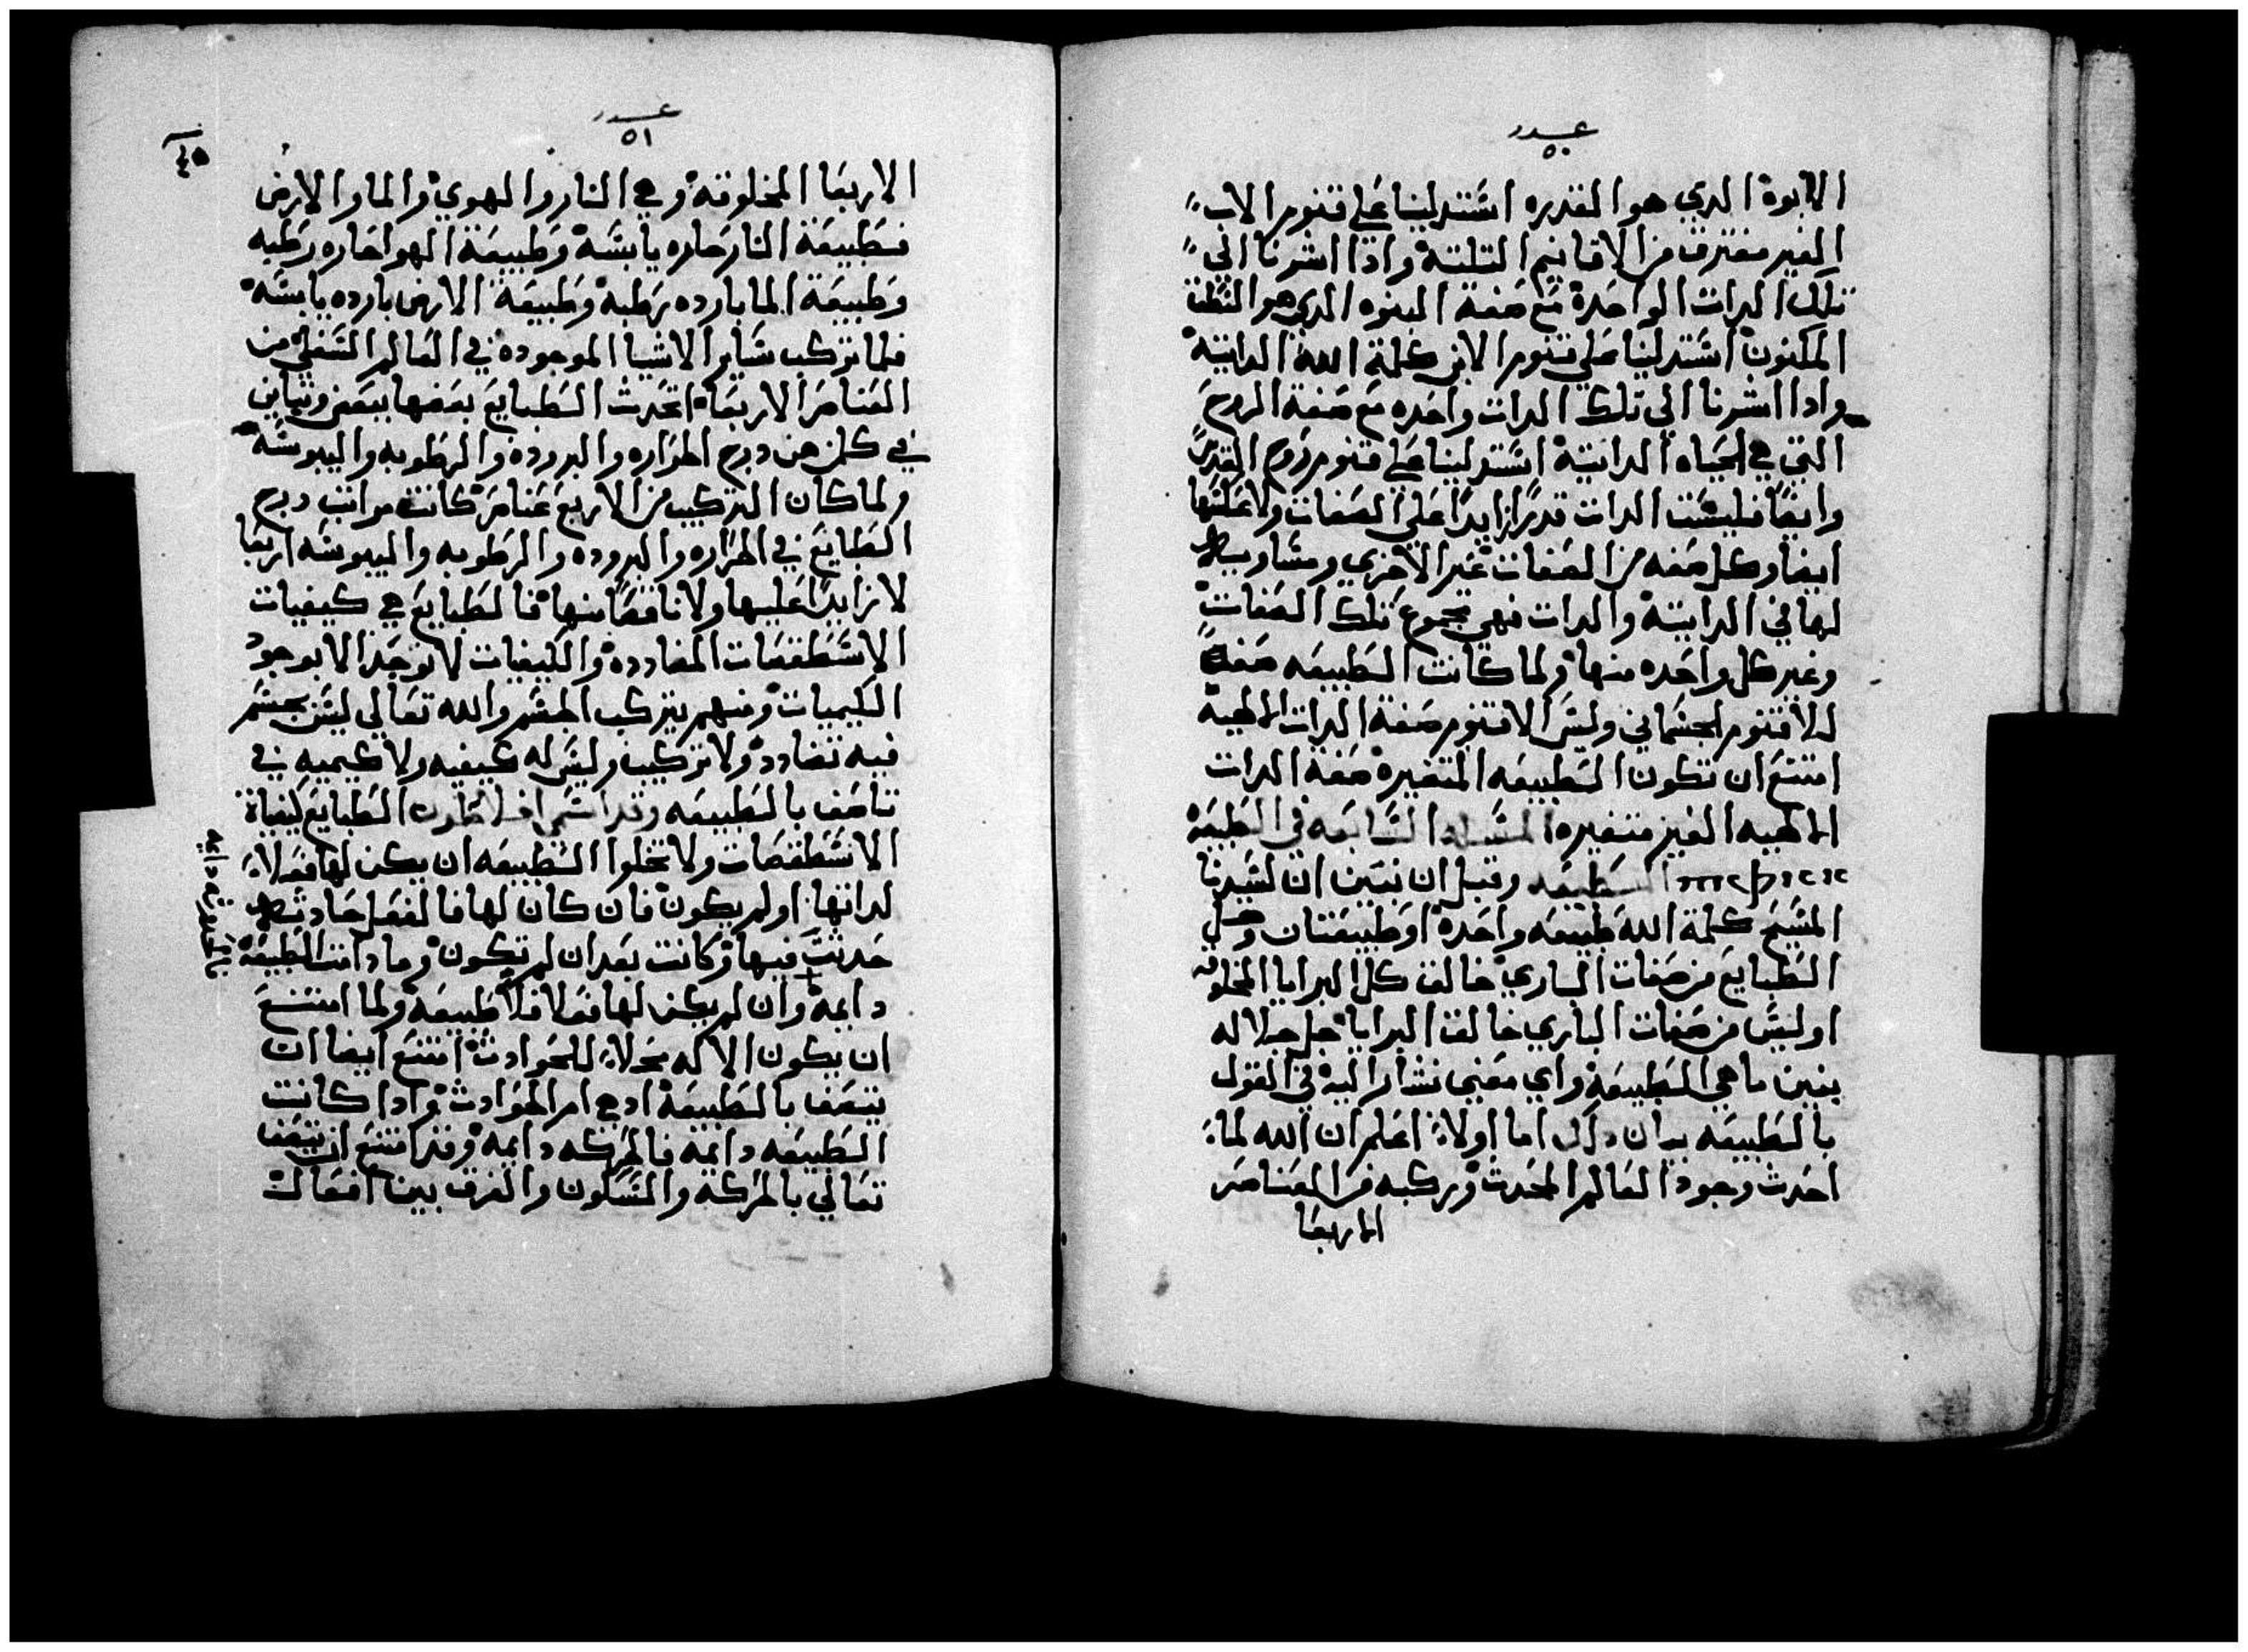 عدد
٥٠
الابوة الدي هو القدره استدلينا علي قنوم الاب
الغير مفترق من الاقانيم التلتة وادا اشرنا الي
تلك الدات الواحدة مع صفة البنوه الدي هو النطق
المكنون استدلينا علي قنوم الابن كلمة الله الداتية
وادا اشرنا الي تلك الدات واحده مع صفة الروح
التي هي الحياه الداتية استدلينا علي قنوم روح القدس
وايضا فليست الدات قدرا زايدا علي الصفات ولا علتها
ايضا وكل صفه من الصفات غير الاخري ومساويه
لها في الداتية والدات فهي مجموع تلك الصفات
وغير كل واحده منها ولما كانت الطبيعه صفة
للاقنوم الجسماني وليس الاقنوم صفة الدات الالهية
امتنع ان تكون الطبيعه المتغيره صفة الدات
الالهيه الغير متغيره المسله السابعه في الطبيعة
الطبيعه وقبل ان نبين ان لسيدنا
المسيح كلمة الله طبيعه واحدة او طبيعتان وهل
الطبايع من صفات الباري خالق كل البرايا المخلوقه
او ليس من صفات الباري خالق البرايا جل جلاله
نبين ما هي الطبيعة واي معني نشار اليه في القول
بالطبيعه بيان دلك اما اولا اعلم ان الله لما
احدث وجود العالم المحدث وركبه من العناصر
الاربعا
عدد
٥١
٤٥
الاربعا المخلوقة وهي النار والهوي والما والارض
فطبيعة النار حاره يابسة وطبيعة الهوا حاره رطبه
وطبيعة الما بارده رطبة وطبيعة الارض بارده يابسة
فلما تركب ساير الاشيا الموجوده في العالم السفلي من
العناصر الاربعا اتحدت الطبايع بعضها ببعض وتباين
في كلمن درج الحراره والبروده والرطوبه واليبوسة
ولما كان التركيب من الاربع عناصر كانت مراتب درج
الطبايع في الحراره والبروده والرطوبه واليبوسه اربعا
لا زايدا عليها ولا ناقصا منها فالطبايع هي كيفيات
الاسطقصات المضاددة والكيفيات لا توجد الا بوجود
الكيميات ومنهم يتركب الجسم والله تعالي ليس بجسم
فيه تضادد ولا تركيب وليس له كيفيه ولا كيميه في
تاصف بالطبيعه وقد اسمي افلاطون الطبايع
الاسطقصات ولا تخلوا الطبيعه ان يكن لها فعلا
لداتها او لم يكون فان كان لها فالفعل حادث
حدثت فيها وكانت بعد ان لم تكون وما دامت الطبيعة
دايمة وان لم يكن لها فعلا فلا طبيعة ولما امتنع
ان يكون الاله محلا للحوادث امتنع ايضا ان
يتصف بالطبيعة اد هي ام الحوادث وادا كانت
الطبيعه دايمه فالحركه دايمة وقد امتنع ان يتصف
تعالي بالحركة والسكون والفرق بين افعال